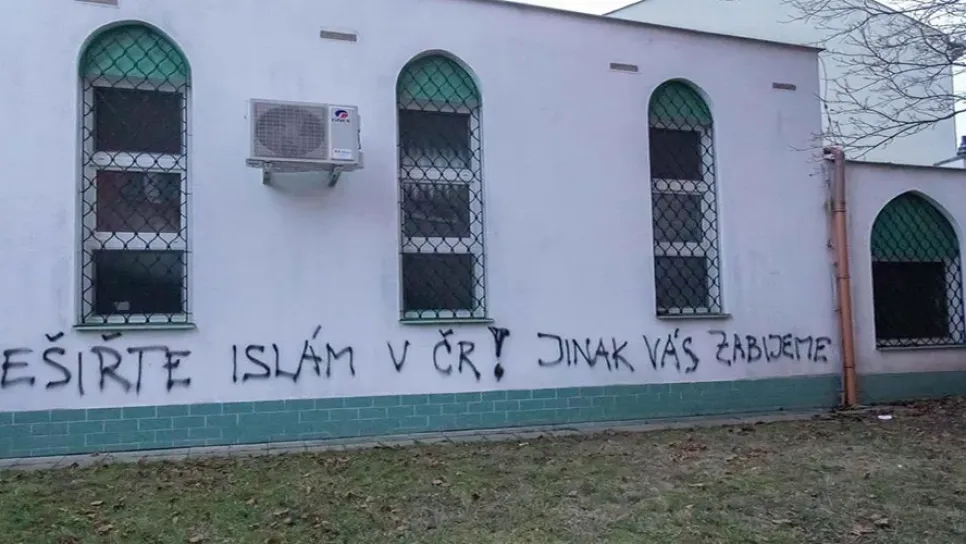 EŠIŘTE ISLÁM V ČR! JINAK VÁS ZABIJEME